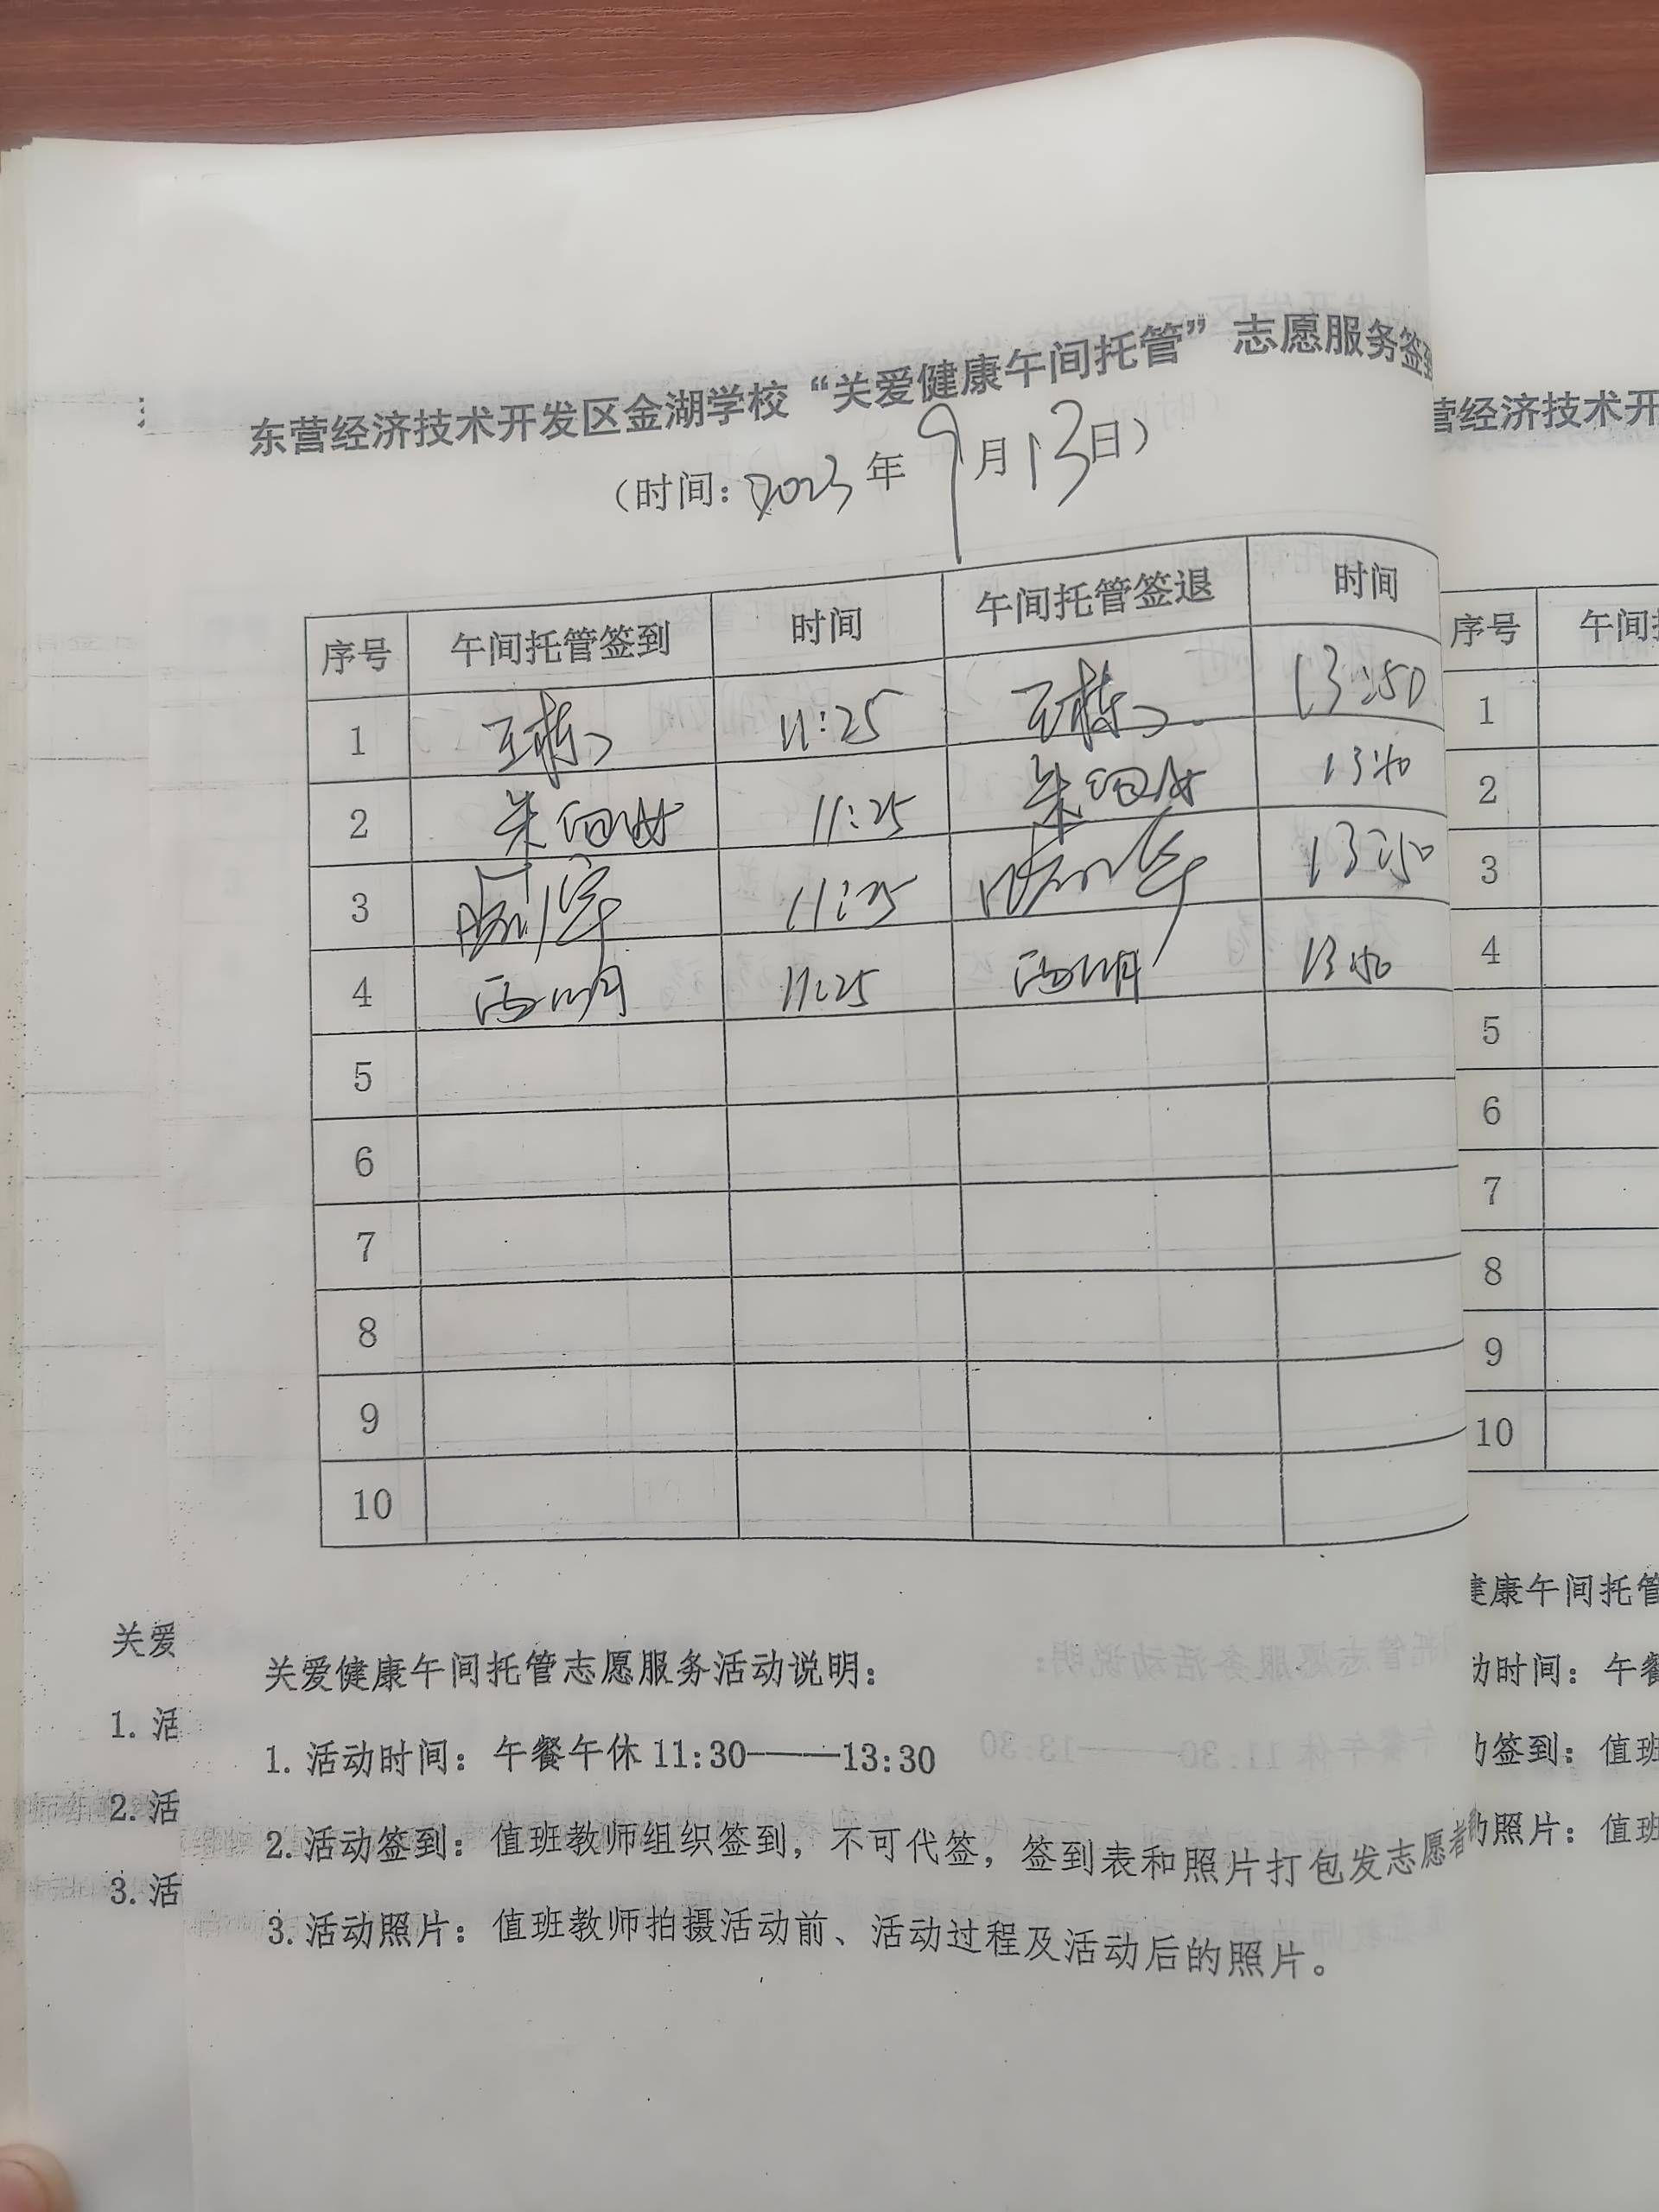 东营经济技术开发区金湖学校“关爱健康午间托管”志愿服务签到
（时间：2023年9月13日）
序号 午间托管签到 时间 午间托管签退 时间
1 11:25 13:50
2 11:25 13:40
3 11:25 13:50
4 11:25 13:40
5
6
7
8
9
10
关爱健康午间托管志愿服务活动说明：
1. 活动时间：午餐午休 11:30——13:30
2. 活动签到：值班教师组织签到，不可代签，签到表和照片打包发志愿者
3. 活动照片：值班教师拍摄活动前、活动过程及活动后的照片。
关爱
1. 活
2. 活
3. 活
营经济技术开
序号 午间
1
2
3
4
5
6
7
8
9
10
健康午间托管
动时间：午餐
动签到：值班
照片：值班